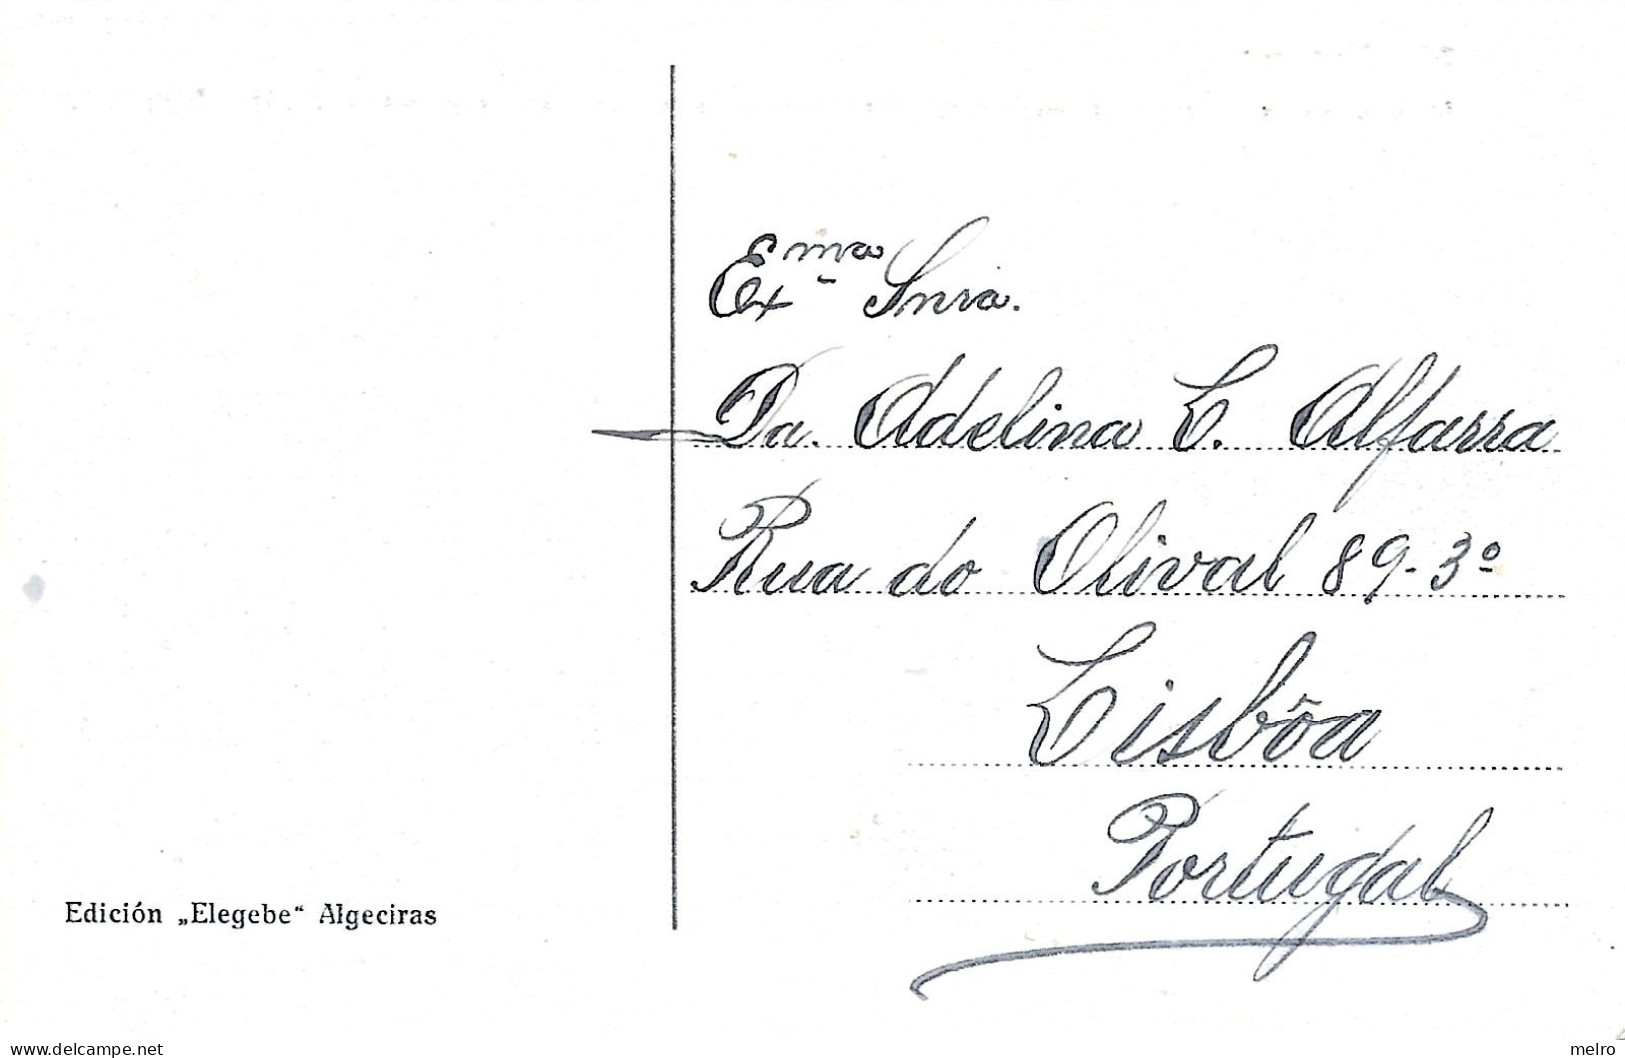 Exma Snra.
Da. Adelina C. Alfarra
Rua do Olival 89-3º
Lisbôa
Portugal
Edición „Elegebe“ Algeciras
www.delcampe.net
melro